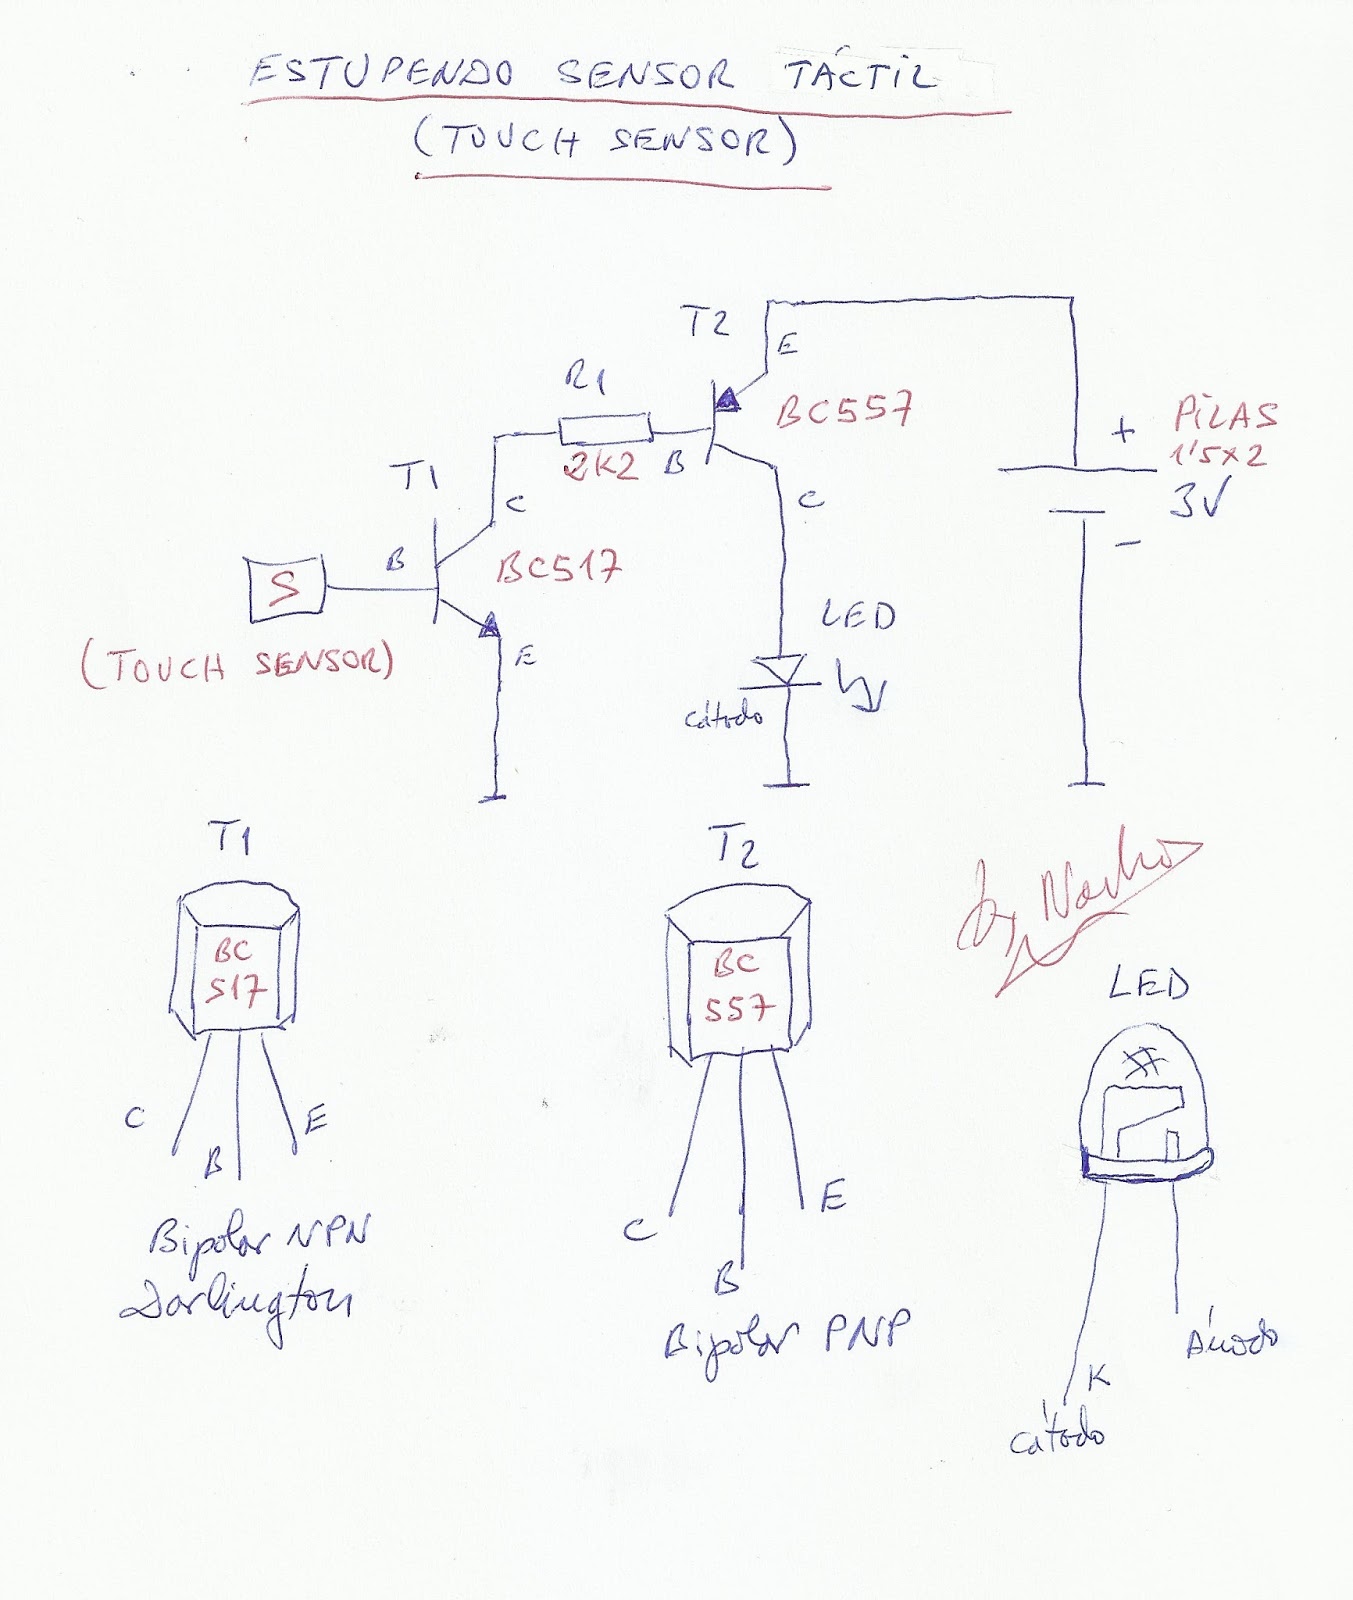 ESTUPENDO SENSOR TÁCTIL
(TOUCH SENSOR)
T2
E
R1
BC557
+
PILAS
1'5x2
3V
2K2
B
T1
C
C
B
BC517
S
(TOUCH SENSOR)
E
LED
-
Cátodo
T1
T2
by Nacho
BC
517
BC
557
LED
C
B
E
C
B
E
Bipolar NPN
Darlington
Bipolar PNP
Ánodo
K
Cátodo